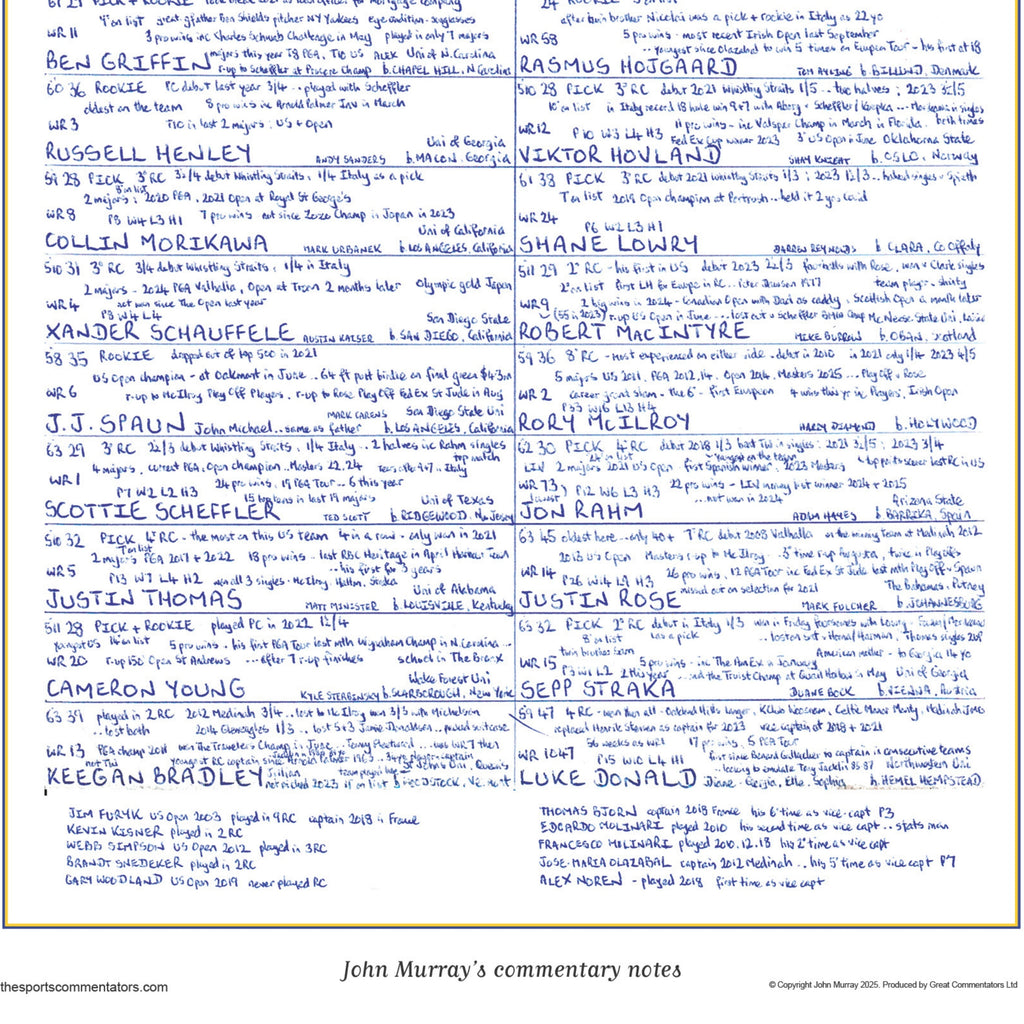 4th on list great gfather Ben Shields pitcher NY Yankees eye condition - sunglasses
WR 11 3 pro wins inc Charles Schwab Challenge in May played in only 7 majors
majors this year T8 PGA, T10 US ALEX Uni of N.Carolina
BEN GRIFFIN r-up to Scheffler at Procore Champ b. CHAPEL HILL, N Carolina
60 36 ROOKIE PC debut last year 3/4 .. played with Scheffler
oldest on the team 5 pro wins inc Arnold Palmer Inv in March
WR 3 T10 in last 2 majors: US + Open
Uni of Georgia
RUSSELL HENLEY ANDY SANDERS b. MACON, Georgia
59 28 PICK 3rd RC 3½/4 debut Whistling Straits, 1/4 Italy as a pick
2 majors: 2020 PGA, 2021 Open at Royal St George's
WR 8 P8 W4 L3 H1 7 pro wins not since Zozo Champ in Japan in 2023
Uni of California
COLLIN MORIKAWA MARK URBANEK b. LOS ANGELES, California
510 31 3rd RC 3/4 debut Whistling Straits, 1/4 in Italy
2 majors - 2024 PGA Valhalla, Open at Troon 2 months later Olympic gold Japan
WR 4 not won since The Open last year
P8 W4 L4 San Diego State
XANDER SCHAUFFELE AUSTIN KAISER b. SAN DIEGO, California
58 35 ROOKIE dropped out of top 500 in 2021
US Open champion - at Oakmont in June .. 64 ft putt birdie on final green $4.3m
WR 6 r-up to McIlroy Play Off Players, r-up to Rose Play Off Fed Ex St Jude in Aug
MARK CARENS San Diego State Uni
J.J. SPAUN John Michael .. same as father b. LOS ANGELES, California
63 29 3rd RC 2½/3 debut Whistling Straits, 1/4 Italy .. 2 halves inc Rahm singles
top match
4 majors, current PGA, Open champion, Masters 22, 24
WR 1 24 pro wins, 19 PGA Tour .. 6 this year
P7 W2 L2 H3
15 top tens in last 19 majors Uni of Texas
SCOTTIE SCHEFFLER TED SCOTT b. RIDGEWOOD, N. Jersey
510 32 PICK 4th RC - the most on this US team 4 in a row - only won in 2021
2 majors PGA 2017 + 2022 18 pro wins - last RBC Heritage in April Harbour Town
WR 5 .. his first for 3 years
P13 W7 L4 H2 won all 3 singles - McIlroy, Hatton, Straka
Uni of Alabama
JUSTIN THOMAS MATT MINISTER b. LOUISVILLE, Kentucky
511 28 PICK + ROOKIE played PC in 2022 1½/4
youngest US 5 pro wins - his first PGA Tour last mth Wyndham Champ in N. Carolina ..
WR 20 r-up 150th Open St Andrews ... after 7 r-up finishes school in The Bronx
Wake Forest Uni
CAMERON YOUNG KYLE STERBINSKY b. SCARBOROUGH, New York
63 39 played in 2 RC 2012 Medinah 3/4 .. lost to McIlroy won 3/3 with Mickelson
.. lost both 2014 Gleneagles 1/3 .. lost 5+3 Jamie Donaldson .. packed suitcase
WR 13 PGA champ 2011 won The Travelers Champ in June .. Tommy Fleetwood .. was WR 7 then
youngest RC captain since Arnold Palmer 1963
KEEGAN BRADLEY not picked 2023 b. WOODSTOCK, Vermont
JIM FURYK US Open 2003 played in 9 RC captain 2018 in France
KEVIN KISNER played in 2 RC
WEBB SIMPSON US Open 2012 played in 3RC
BRANDT SNEDEKER played in 2RC
GARY WOODLAND US Open 2019 never played RC
24 ROOKIE
after twin brother Nicolai was a pick + rookie in Italy as 22 yo
WR 58 5 pro wins - most recent Irish Open last September
... youngest since Olazabal to win 5 times on European Tour - his first at 18
RASMUS HOJGAARD TOM AYLING b. BILLUND, Denmark
510 28 PICK 3rd RC debut 2021 Whistling Straits 1/5 .. two halves; 2023 3½/5
10th on list in Italy record 18 hole win 9+7 with Aberg v Scheffler/Koepka ... Morikawa in singles both times
11 pro wins - inc Valspar Champ in March in Florida
WR 12 P10 W3 L4 H3 Fed Ex Cup winner 2023 3rd US Open in June Oklahoma State
VIKTOR HOVLAND SHAY KNIGHT b. OSLO, Norway
61 38 PICK 3rd RC debut 2021 Whistling Straits 1/3; 2023 1½/3 .. halved singles v Spieth
7th on list 2019 Open champion at Portrush .. held it 2 yrs covid
WR 24
P6 W2 L3 H1
SHANE LOWRY DARREN REYNOLDS b CLARA, Co Offaly
511 29 2nd RC - his first in US debut 2023 2½/3 fourballs with Rose, won v Clark singles
2nd on list first LH for Europe in RC .. Peter Dawson 1977 team player - shinty
WR 9 2 big wins in 2024 - Canadian Open with Dad as caddy, Scottish Open a month later
(55 in 2023) r-up US Open in June ... lost out v Scheffler BMW Champ McNeese State Uni, Louisiana
ROBERT MACINTYRE MIKE BURROW b. OBAN, Scotland
59 36 8th RC - most experienced on either side - debut in 2010 in 2021 only 1/4 2023 4/5
5 majors US 2011, PGA 2012, 14, Open 2014, Masters 2025 ... Play Off v Rose
WR 2 career grand slam - The 6th - first European 4 wins this yr inc Players, Irish Open
P33 W16 L13 H4
RORY MCILROY HARRY DIAMOND b. HOLYWOOD
62 30 PICK 4th RC debut 2018 1/3 beat TW in singles; 2021 3½/5; 2023 3/4
LIV 2 majors 2021 US Open first Spanish winner, 2023 Masters top pts scorer last RC in US
WR 73 P12 W6 L3 H3 22 pro wins - LIV money list winner 2024 + 2025
lowest ... not won in 2024 Arizona State
JON RAHM ADAM HAYES b BARRIKA, Spain
63 45 oldest here ... only 40+ 7th RC debut 2008 Valhalla on the winning team at Medinah 2012
2013 US Open Masters r-up to McIlroy .. 3rd time r-up Augusta, twice in Play Offs
WR 14 26 pro wins, 12 PGA Tour inc Fed Ex St Jude last mth Play Off v Spaun
P26 W14 L9 H3 missed out on selection for 2021 The Bahamas, Putney
JUSTIN ROSE MARK FULCHER b. JOHANNESBURG
63 32 PICK 2nd RC debut in Italy 1/3 won in Friday foursomes with Lowry
8th on list was a pick .. lost on sat - Homa/Harman, Thomas singles 2up
twin brother Sam American mother - to Georgia 14 yo
WR 15 5 pro wins - inc The Am Ex in January
P3 W1 L2 2 this year ... and the Truist Champ at Quail Hollow in May Uni of Georgia
SEPP STRAKA DUANE BOCK b. VIENNA, Austria
59 47 4 RC - won them all - Oakland Hills Langer, K Club Woosnam, Celtic Manor Monty, Medinah JMO
replaced Henrik Stenson as captain for 2023 vice captain at 2018 + 2021
56 weeks as WR1 17 pro wins, 5 PGA Tour
WR 1047 P15 W10 L4 H1 first since Bernard Gallacher to captain in consecutive teams
.. looking to emulate Tony Jacklin 85 87 Northwestern Uni
LUKE DONALD Diane - Elle, Sophia b. HEMEL HEMPSTEAD
THOMAS BJORN captain 2018 France his 6th time as vice-capt P3
EDOARDO MOLINARI played 2010 his second time as vice capt .. stats man
FRANCESCO MOLINARI played 2010, 12, 18 his 2nd time as vice capt
JOSE-MARIA OLAZABAL captain 2012 Medinah .. his 5th time as vice capt P7
ALEX NOREN - played 2018 first time as vice capt
John Murray's commentary notes
thesportscommentators.com
© Copyright John Murray 2025. Produced by Great Commentators Ltd